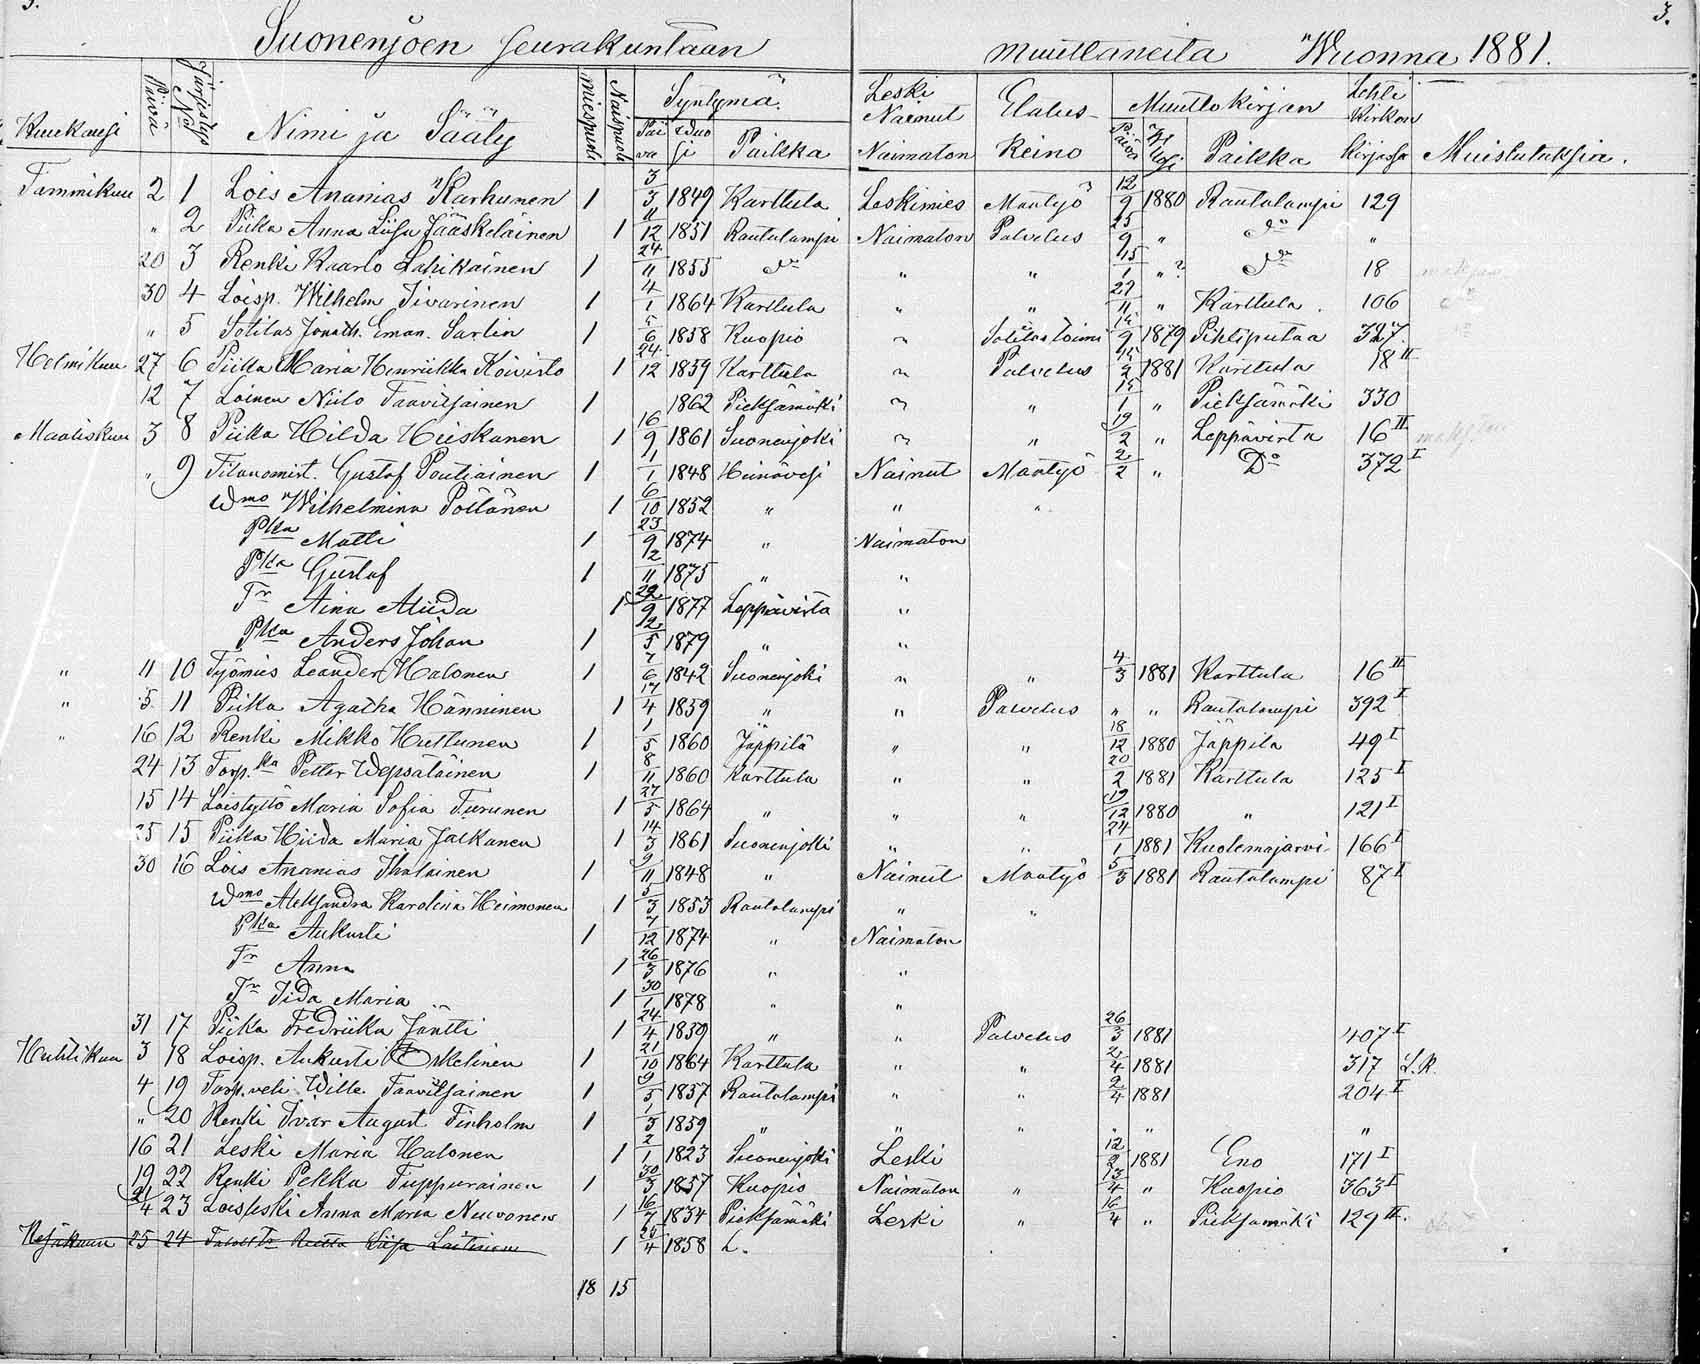 3. 3.
Suonenjoen seurakuntaan muuttaneita Wuonna 1881.
Kuukausi Päivä Järjestys No Nimi ja Sääty Miespuoli Naispuoli Syntymä. Päivä Wuosi Paikka Leski Nainut Naimaton Elatus-Keino Muuttokirjan Päivä Paikka Lehti Kirkon kirjassa Muistutuksia.
Tammikuu 2 1 Lois Ananias Karhunen 1 3/3 1849 Karttula Leskimies Maatyö 12/9 1880 Rautalampi 129
" 2 Piika Anna Liisa Jääskeläinen 1 11/12 1851 Rautalampi Naimaton Palvelus 25/9 " Do "
20 3 Renki Kaarlo Lapikainen 1 24/11 1855 Do " " 15/1 "? Do 18
30 4 Loisp. Wilhelm Iivarinen 1 4/1 1864 Karttula " " 27/11 " Karttula 106
" 5 Sotilas Jonath. Eman. Sarlin 1 5/6 1858 Kuopio " Sotilas toimi 15/9 1879 Pihtiputaa 327.
Helmikuu 27 6 Piika Maria Henriikka Koivisto 1 24/12 1859 Karttula " Palvelus 15/2 1881 Karttula 18 II
12 7 Loinen Niilo Taavitsainen 1 1862 Pieksämäki " " 15/1 " Pieksämäki 330
Maaliskuu 3 8 Piika Hilda Hiiskanen 1 16/9 1861 Suonenjoki " " 19/2 " Leppävirta 16 II
" 9 Tilanomist. Gustaf Poutiainen 1 1/1 1848 Heinävesi Nainut Maatyö 2/2 " Do 372 I
Wmo Wilhelmina Pöllänen 1 6/10 1852 " " "
Pka Matti 1 23/9 1874 " Naimaton
Pka Gustaf 1 2/11 1875 " "
Tr Aina Aliida 1 22/9 1877 Leppävirta "
Pka Anders Johan 1 12/5 1879 " "
" 11 10 Työmies Leander Halonen 1 7/6 1842 Suonenjoki " " 4/3 1881 Karttula 16 II
" 5 11 Piika Agatha Hänninen 1 17/4 1859 " " Palvelus " " Rautalampi 392 I
" 16 12 Renki Mikko Huttunen 1 1/5 1860 Jäppilä " " 18/12 1880 Jäppilä 49 I
24 13 Torp.ka Petter Wepsäläinen 1 8/11 1860 Karttula " " 20/2 1881 Karttula 125 I
15 14 Loistyttö Maria Sofia Turunen 1 27/5 1864 " " " 19/12 1880 " 121 I
25 15 Piika Hiida Maria Jalkanen 1 14/3 1861 Suonenjoki " " 24/1 1881 Kuolemajärvi 166 I
30 16 Lois Ananias Ihalainen 1 9/11 1848 " Nainut Maatyö 5/3 1881 Rautalampi 87 I
Wmo Aleksandra Karoliina Heimonen 1 5/3 1853 Rautalampi " "
Pka Aukusti 1 7/12 1874 " Naimaton
Tr Anna 1 26/3 1876 " "
Tr Iida Maria 1 30/1 1878 " "
31 17 Piika Fredriika Jäntti 1 24/4 1859 " " Palvelus 26/3 1881 407 I
Huhtikuu 3 18 Loisp. Aukusti Eskelinen 1 21/10 1864 Karttula " " 2/4 1881 317 L.K.
4 19 Torp. veli Wille Taavitsainen 1 9/5 1857 Rautalampi " " 2/4 1881 204 I
" 20 Renki Ivar August Finholm 1 1/3 1859 " " " " " "
16 21 Leski Maria Halonen 1 2/1 1823 Suonenjoki Leski 12/2 1881 Eno 171 I
19 22 Renki Pekka Tuppurainen 1 30/3 1857 Kuopio Naimaton " 13/4 " Kuopio 363 I
21/4 23 Loisleski Anna Maria Nuuvonen 1 16/7 1834 Pieksämäki Leski " 16/4 " Pieksämäki 129 II.
Kesäkuu 25 24 Liisa Laitinen 1 25/4 1858 L.
18 15